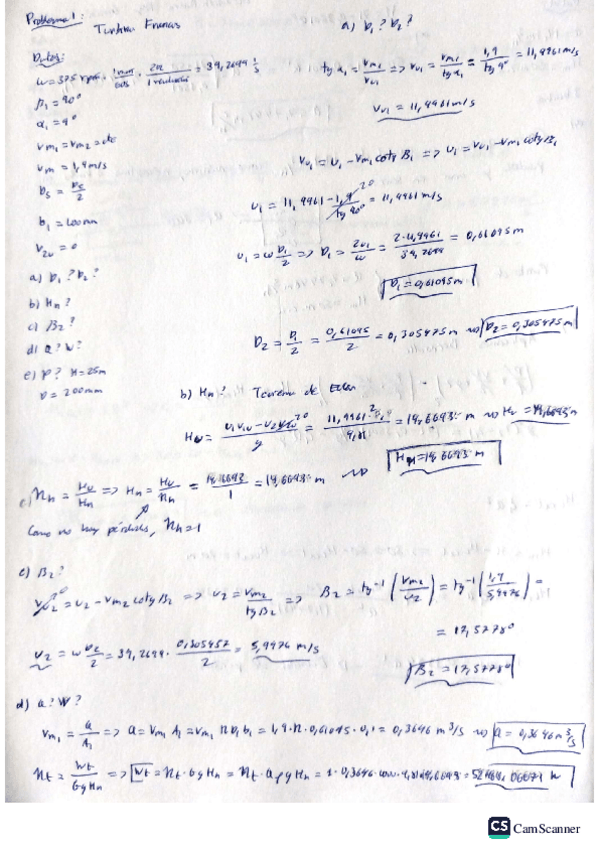 Problema 1: Turbina Francis
Datos:
ω = 375 rpm · 1min/60s · 2π/1 revolución = 39,2699 1/s
β₁ = 90°
α₁ = 9°
Vm₁ = Vm₂ = cte
Vm = 1,9 m/s
b₁ = 100 mm
V₂u = 0
a) D₁? D₂?
b) Hn?
c) β₂?
d) Q? W?
e) P? H = 25m
D = 200mm
a) D₁? D₂?
tg α₁ = Vm₁/Vu₁ => Vu₁ = Vm₁/tg α₁ = 1,9/tg 9° = 11,9961 m/s
Vu₁ = 11,9961 m/s
Vu₁ = u₁ - Vm₁ cotg β₁ => u₁ = Vu₁ - Vm₁ cotg β₁
u₁ = 11,9961 - 1,9/tg 90° = 11,9961 m/s
u₁ = ω D₁/2 => D₁ = 2u₁/ω = 2·11,9961/39,2699 = 0,61095 m
D₁ = 0,61095 m
D₂ = D₁/2 = 0,61095/2 = 0,305475 m D₂ = 0,305475 m
b) Hn? Teorema de Euler
= 14,6693 m
Hn = 14,6693 m
ηh = Hu/Hn => Hn = Hu/ηh = 14,6693/1 = 14,6693 m
Como no hay pérdidas, ηh = 1
c) β₂?
V₂u = u₂ - Vm₂ cotg β₂ => u₂ = Vm₂/tg β₂ => β₂ = tg⁻¹ (Vm₂/u₂) = tg⁻¹ (1,9/5,9976) =
= 17,5778°
u₂ = ω D₂/2 = 39,2699 · 0,305457/2 = 5,9976 m/s
β₂ = 17,5778°
d) Q? W?
Vm₁ = Q/A₁ => Q = Vm₁ A₁ = Vm₁ π D₁ b₁ = 1,9·π·0,61095·0,1 = 0,3646 m³/s Q = 0,3646 m³/s
ηt = Wt/GgHn => Wt = ηt·GgHn = ηt·QρgHn
CS CamScanner